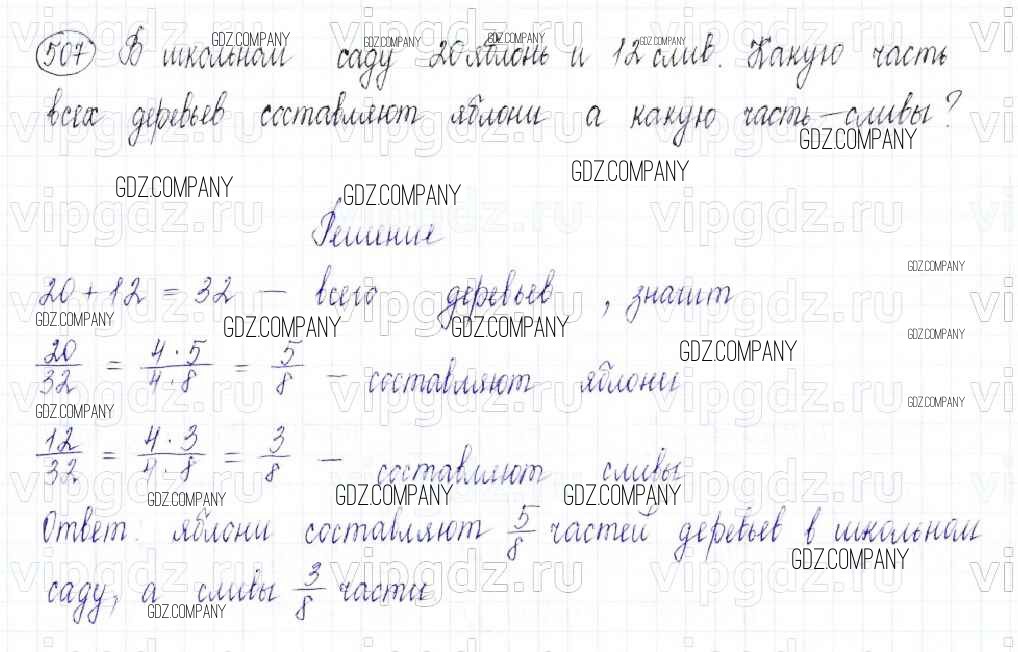 507 В школьном саду 20 яблонь и 12 слив. Какую часть
всех деревьев составляют яблони а какую часть – сливы?
Решение
20 + 12 = 32 – всего деревьев, значит
20/32 = 4·5/4·8 = 5/8 – составляют яблони
12/32 = 4·3/4·8 = 3/8 – составляют сливы
Ответ: яблони составляют 5/8 частей деревьев в школьном
саду, а сливы 3/8 части
GDZ.COMPANY
vipgdz.ru